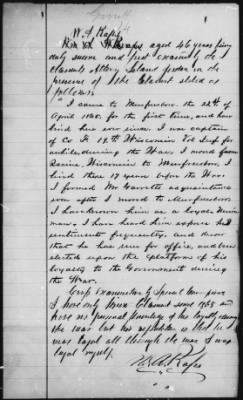 aged 46 years being
duly sworn and first examined by
Claimants Attorney in the
presence of the Claimant stated as
follows
"I came to Murfreesboro the 22nd of
April 1865 for the first time, and have
lived here ever since. I was captain
of Co K 19th Wisconsin Vol Inft for
awhile, during the War. I moved from
Racine, Wisconsin to Murfreesboro, I
lived there 17 years before the War.
I formed Mr acquaintance
soon after I moved to Murfreesboro
I have known him as a loyal Union
man, I have heard him express
sentiments frequently, and know
that he has run for office, and was
elected upon the platform of his
loyalty to the Government during
the War.
Cross Examination by Special Com
I have only known Claimant since 1865 and
have no personal knowledge of his loyalty during
the war but his reputation is that he
was loyal all through the war I was
loyal myself.